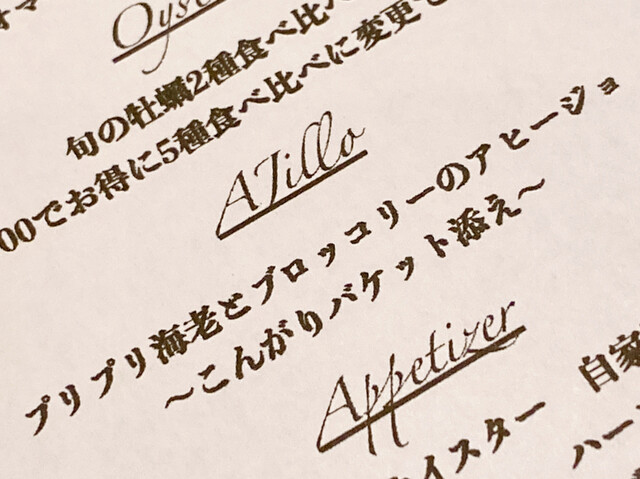 オマ
Oys
旬の牡蠣2種食べ比べ
00でお得に5種食べ比べに変更
AJillo
プリプリ海老とブロッコリーのアヒージョ
〜こんがりバケット添え〜
Appetizer
イスター 自家
ハー